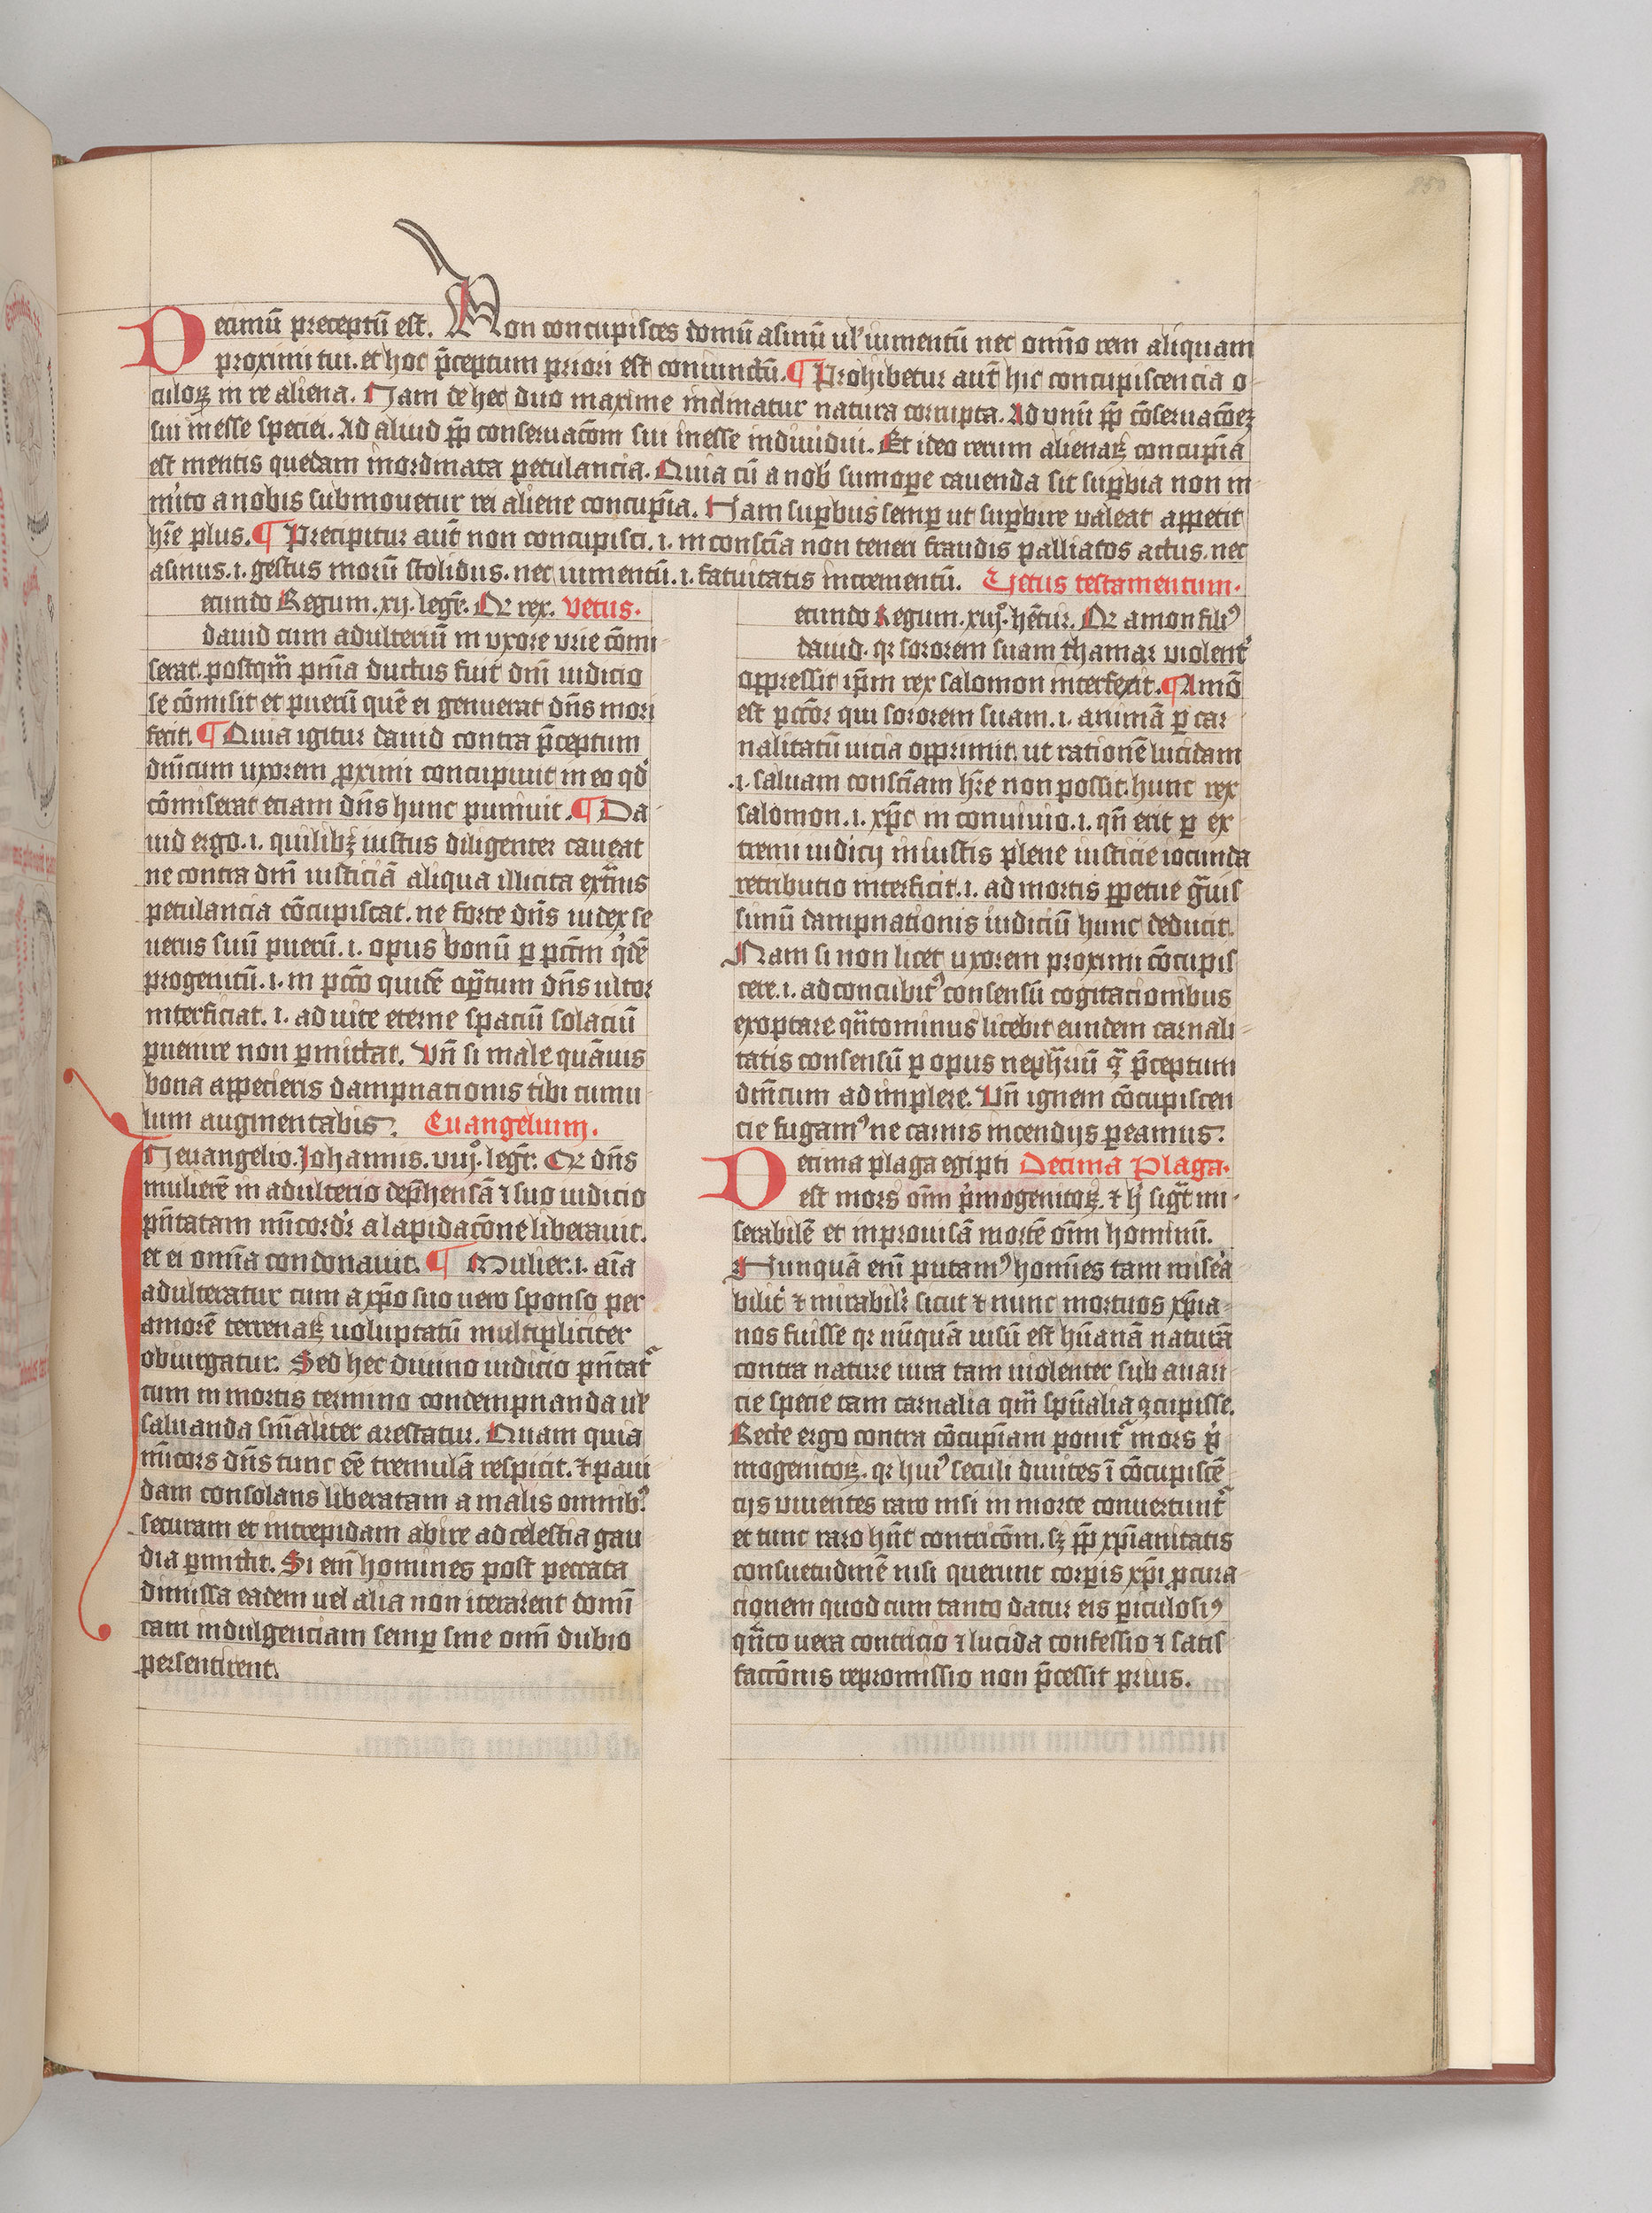 Decimū preceptū est. Non concupisces domū asinū ul' iumentū nec om̄o rem aliquam
proximi tui. et hoc p̄ceptum priori est coniunctū. ¶ Prohibetur aut̄ hic concupiscencia o-
culoꝝ in re aliena. Nam de hec duo maxime inclinatur natura corrupta. Ad vnū ꝓp̄ cōseruacōeꝫ
sui in esse speciei. Ad aliud ꝓp̄ conseruacōm sui in esse indiuidui. Et ideo rerum alienaꝝ concupīa
est mentis quedam inordinata petulancia. Quia cū a nob' sumoꝑe cauenda sit suꝑbia non in-
m'ito a nobis submouetur rei aliene concupīa. Nam suꝑbus semꝑ ut suꝑbire valeat appetit
hr̄e plus. ¶ Precipitur aut̄ non concupisci .i. in consciā non teneri fraudis palliatos actus. nec
asinus .i. gestus morū stolidus. nec iumentū .i. fatuitatis incrementū. Vetus testamentum.
ecundo Regum .xij. legr̄. Qr rex. Vetus.
dauid cum adulteriū in vxore vrie cōmi-
serat. postqm̄ pnīa ductus fuit dnī iudicio
se cōmisit et puerū quē ei genuerat dn̄s mori
fecit. ¶ Quia igitur dauid contra p̄ceptum
dnīcum uxorem ꝓximi concupiuit in eo qd'
cōmiserat eciam dn̄s hunc puniuit. ¶ Da-
uid ergo .i. quilibꝫ iustus diligenter caueat
ne contra dnī iusticiā aliqua illicita ext̄nis
petulancia cōcupiscat. ne forte dn̄s iudex se
uerus suū puerū .i. opus bonū ꝑ pctm̄ q'dē
progenitū .i. in pctō quidē oꝑatum dn̄s ultor
interficiat .i. ad uite eterne spaciū solaciū
ꝑuenire non ꝑmittat. Vn̄ si male quāuis
bona appecieris dampnationis tibi cumu
lum augmentabis. Euangelium.
N euangelio. Johannis. viijº. legr̄. Qr dn̄s
mulierē in adulterio dep̄hensā ⁊ suo iudicio
pn̄tatam mīcordr̄ a lapidacōne liberauit.
et ei omīa condonauit. ¶ Mulier .i. aīa
adulteratur cum a xp̄o suo uero sponso per
amorē terrenaꝝ uoluptatū multipliciter
obiurgatur. Sed hec diuino iudicio pn̄tat᷑
cum in mortis termino condempnanda ul'
saluanda sīnaliter arestatur. Quam quia
mīcors dn̄s tunc eē tremulā respicit. ⁊ paui
dam consolans liberatam a malis omnibꝰ
securam et intrepidam abire ad celestia gau
dia ꝑmittit. Si em̄ homines post peccata
dimissa eadem uel alia non iterarent domī
cam indulgenciam semꝑ sine om̄i dubio
persentirent.
ecundo Regum .xiijº. hētur. Qr amon filiꝰ
dauid. qr sororem suam thamar violent'
oppressit ip̄m rex salomon interfecit. ¶ Amō
est pctōr qui sororem suam .i. animā ꝑ car-
nalitatū uicia opprimit. ut rationē lucidam
.i. saluam consciām hr̄e non possit. hunc rex
salomon .i. xp̄c in conuiuio .i. qn̄ erit ꝑ ex-
tremi iudicij in iustis plene iusticie iocunda
retributio interficit .i. ad mortis ꝑpetue g̃uis
simū dampnationis iudiciū hunc deducit.
Nam si non licet uxorem proximi cōcupis
cere .i. ad concubitꝰ consensū cogitacionibus
exoptare qn̄tominus licebit eundem carnali-
tatis consensū ꝑ opus neph̄riū q̃ p̄ceptum
dnīcum adimplere. Vn̄ ignem cōcupiscen
cie fugamꝰ ne carnis incendijs ꝑeamus.
Decima plaga egipti Decima Plaga.
est mors om̄ p'mogenitoꝝ. ⁊ h' sig̃t mi-
serabilē et inprouisā mortē om̄i hominū.
Nunquā enī putamꝰ homīes tam mis'a
bilit' ⁊ mirabilr̄ sicut ⁊ nunc mortuos xp̄ia-
nos fuisse qr nūquā uisū est hūanā naturā
contra nature iura tam uiolenter sub auari-
cie specie tam carnalia qm̄ spūalia ꝯcupisse.
Recte ergo contra cōcupīam ponit᷑ mors p'
mogenitoꝝ. qr huiꝰ seculi diuites ī cōcupiscē-
cijs viuentes raro nisi in morte conuertunt᷑
et tunc raro hn̄t contricōm. sꝫ ꝓp̄ xp̄ianitatis
consuetudinē nisi querunt corꝑis xp̄i ꝓcura-
cionem quod cum tanto datur eis ꝑiculosiꝰ
qn̄to uera contricio ⁊ lucida confessio ⁊ satis
faccōnis repromissio non p̄cessit prius.